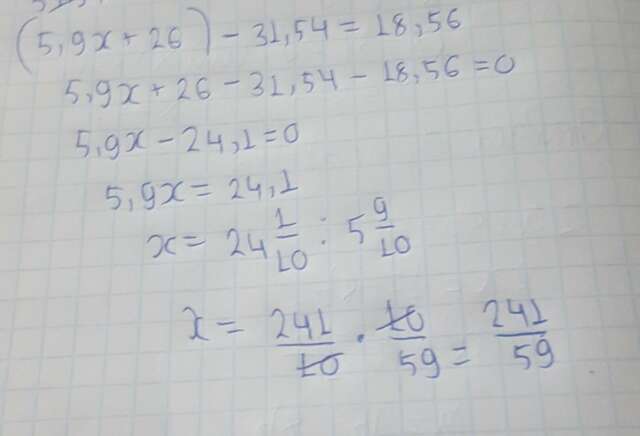 (5,9x + 26) - 31,54 = 18,56
5,9x + 26 - 31,54 - 18,56 = 0
5,9x - 24,1 = 0
5,9x = 24,1
x = 24 1/10 : 5 9/10
x = 241/10 · 10/59 = 241/59